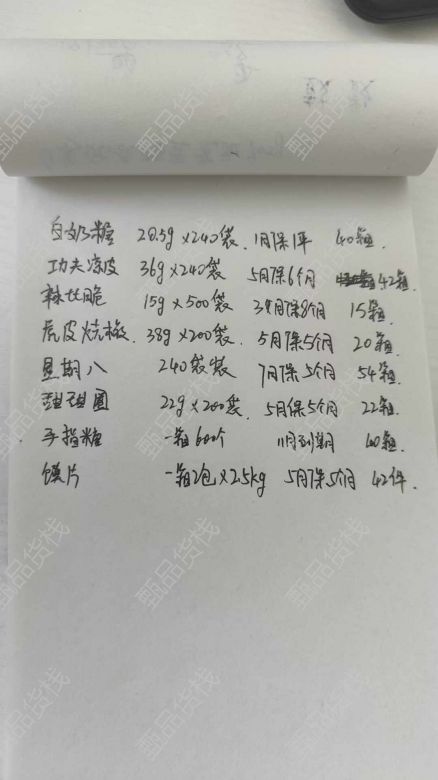 白奶糖 20.5g×240袋. 1月保1年 40箱.
功夫凉皮 36g×240袋 5月保6个月 42箱.
辣比脆 15g×500袋 3月保8个月 15箱.
虎皮烧椒. 38g×200袋. 5月保5个月 20箱.
星期八 240袋装 7月保5个月 54箱.
甜甜圈 22g×200袋. 5月保5个月 22箱.
手指糖 一箱600个 11月到期 40箱.
馍片 一箱2包×2.5kg 5月保5个月 42件.
甄品货栈